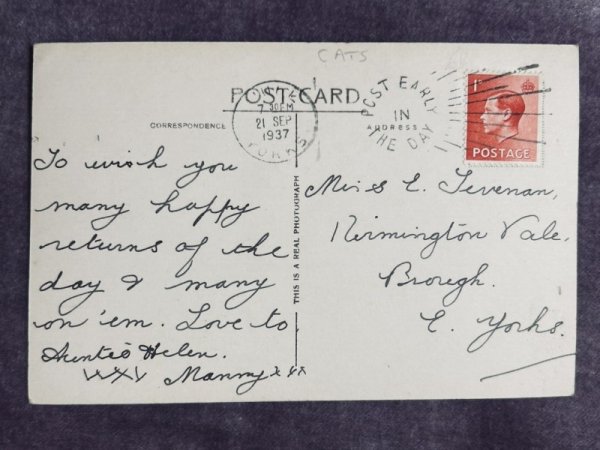 CATS
POST CARD
CORRESPONDENCE
ADDRESS
7 30PM
21 SEP
1937
YORKS
POST EARLY
IN
THE DAY
1D
POSTAGE
To wish you
many happy
returns of the
day & many
on 'em. Love to
Auntie Helen.
xxx Manny x x x
THIS IS A REAL PHOTOGRAPH
Miss E. Tevenan,
Kirmington Vale,
Brough.
E. Yorks.